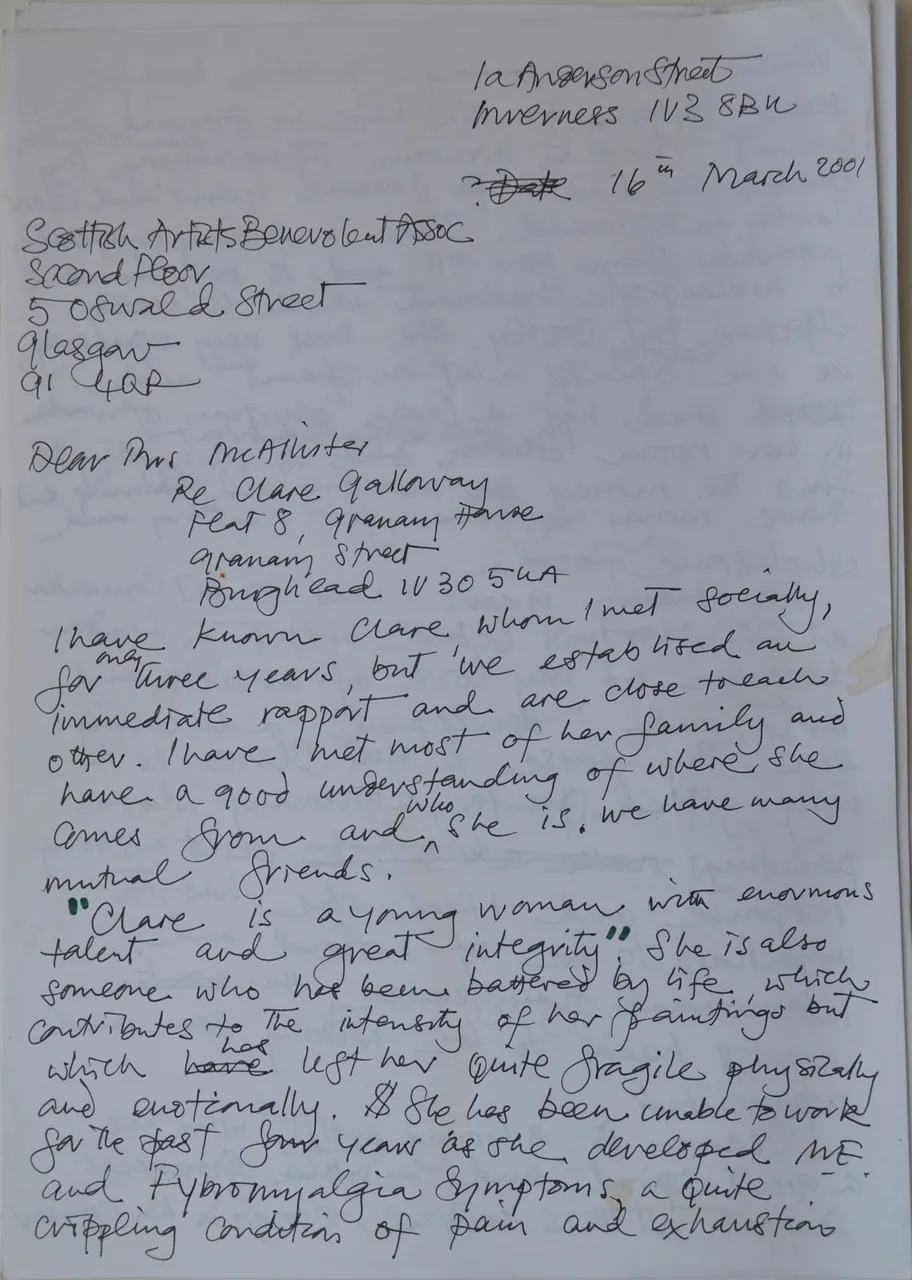 1a Anderson Street
Inverness IV3 8BU
? Date 16th March 2001
Scottish Artists Benevolent Assoc
Second Floor
5 Oswald Street
Glasgow
G1 4QR
Dear Mrs McAllister
Re Clare Galloway
Flat 8, Granary House
Granary Street
Burghead IV30 5UA
I have known Clare, whom I met socially,
for only three years, but we established an
immediate rapport and are close to each
other. I have met most of her family and
have a good understanding of where she
comes from and who she is. We have many
mutual friends.
"Clare is a young woman with enormous
talent and great integrity". She is also
someone who has been battered by life, which
contributes to the intensity of her paintings but
which have has left her quite fragile physically
and emotionally. She has been unable to work
for the past four years as she developed ME
and Fybromyalgia Symptoms, a quite
crippling condition of pain and exhaustion